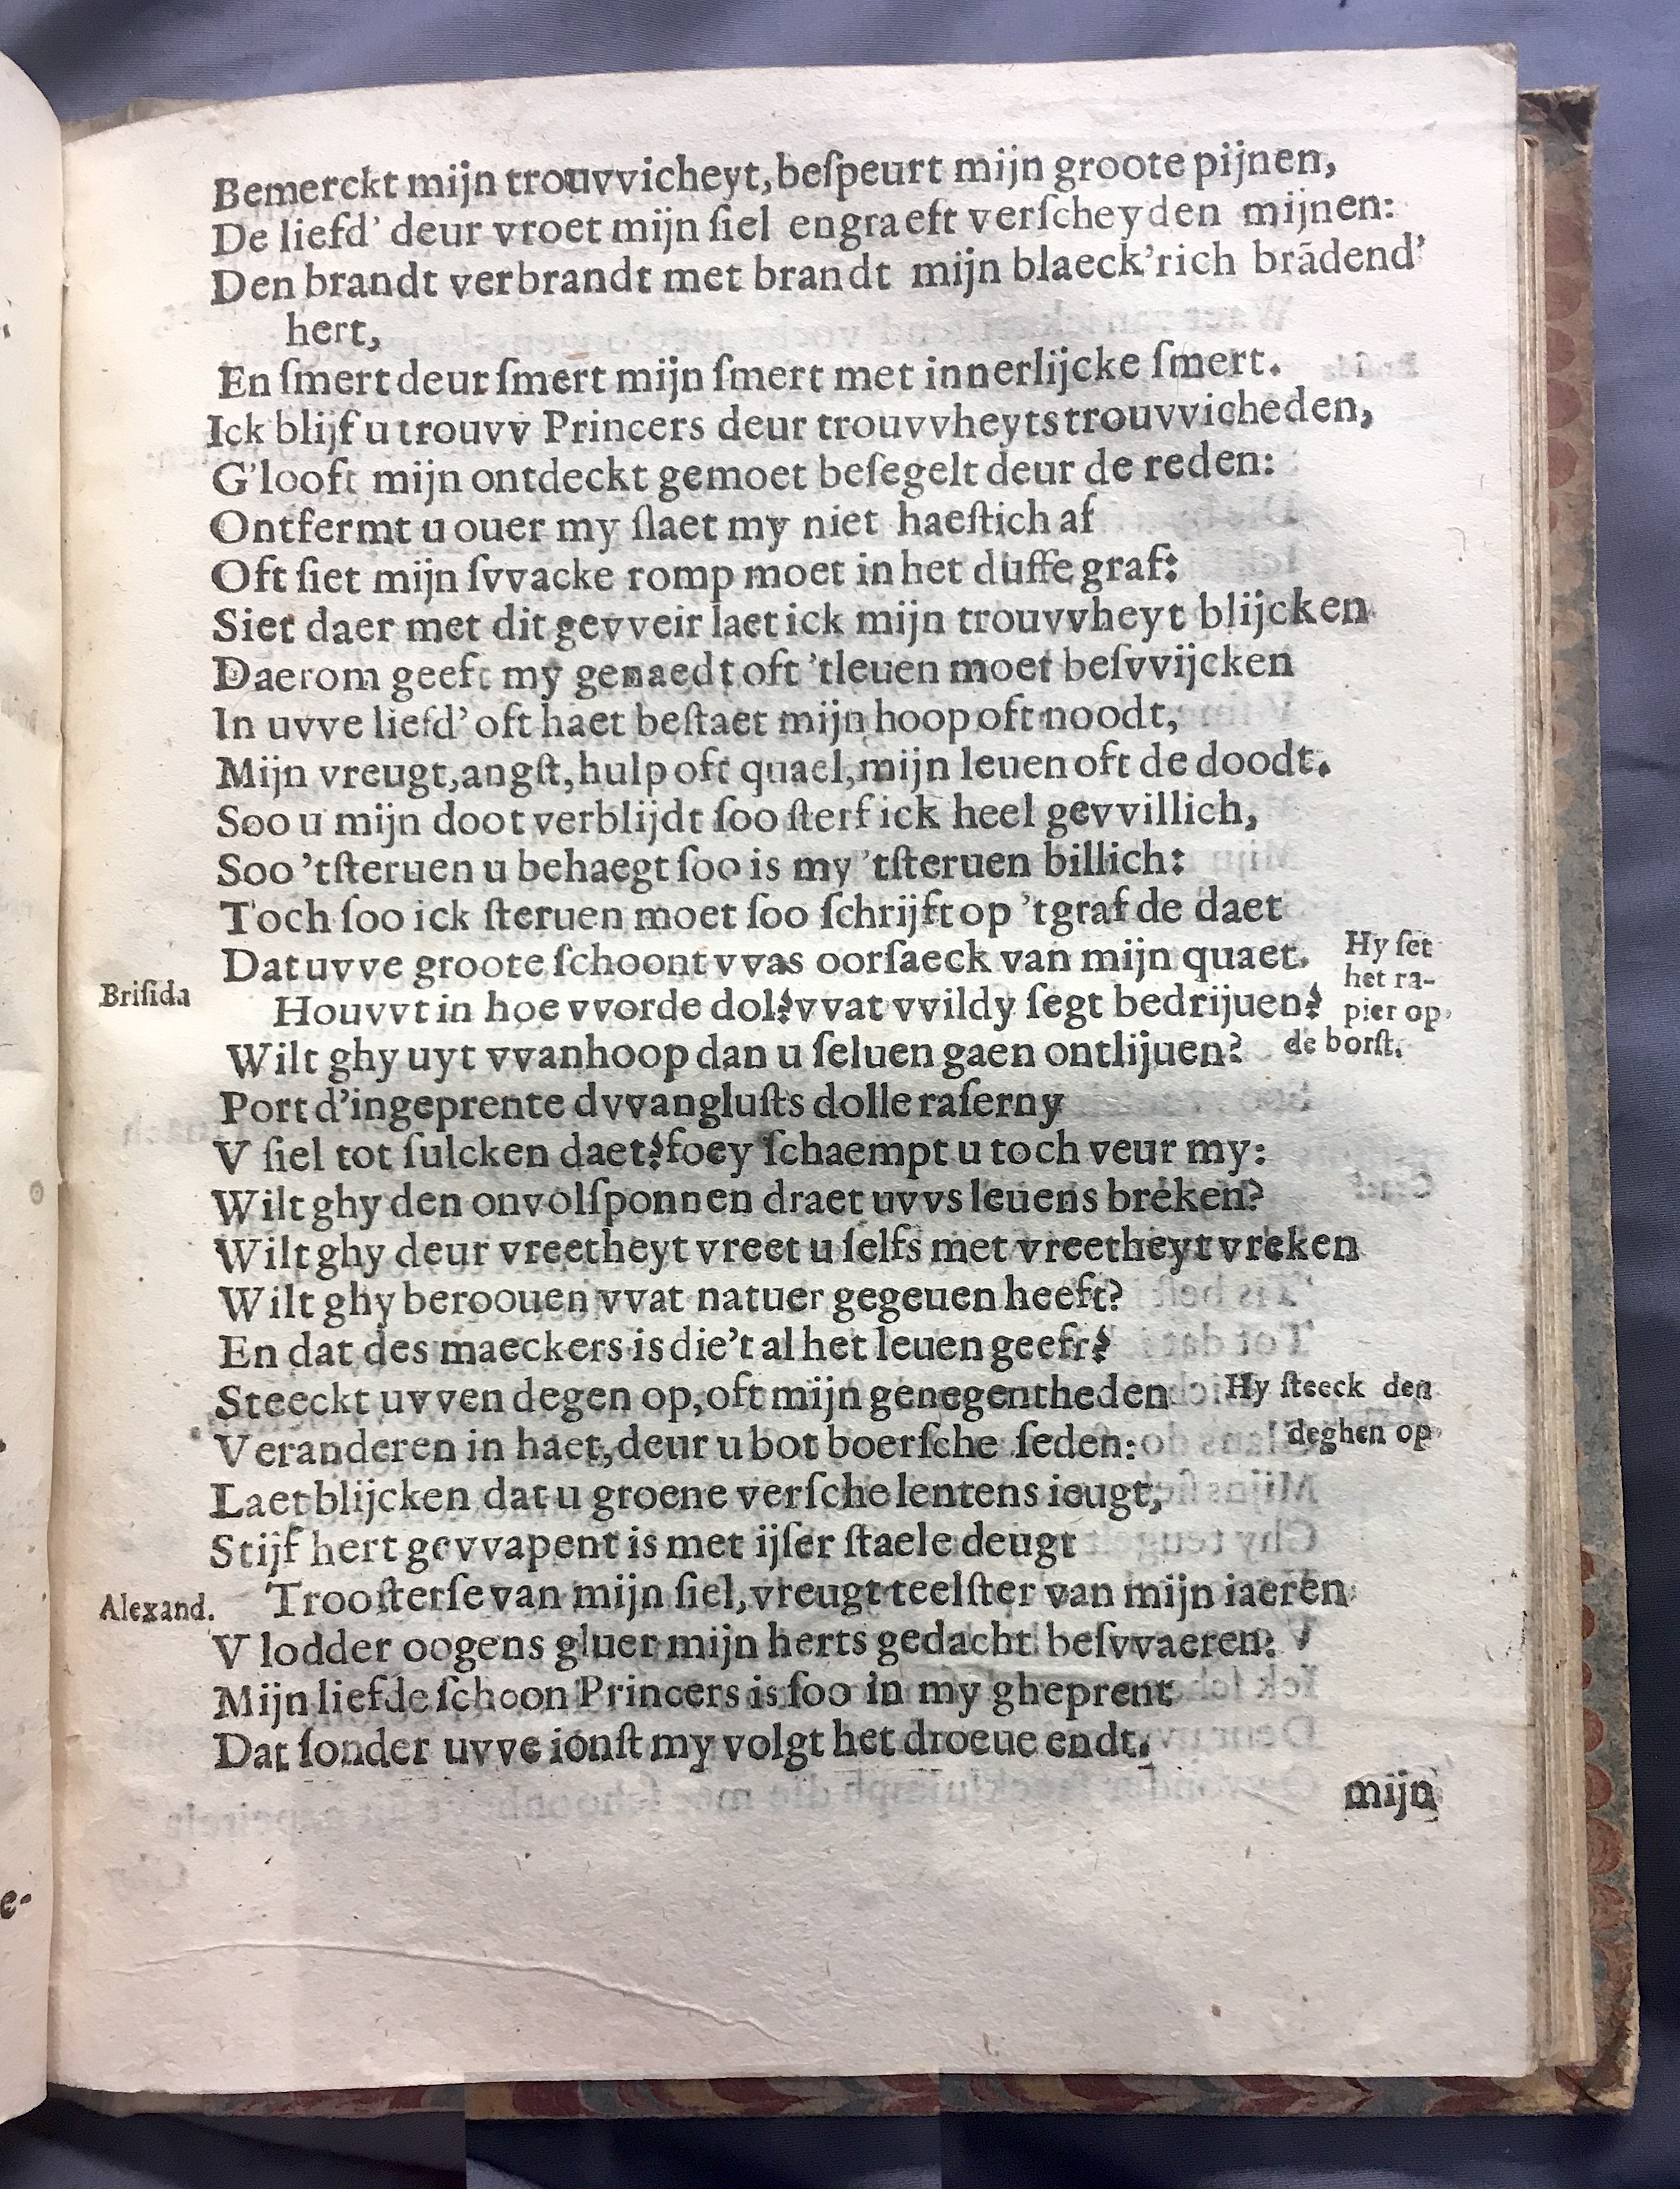 Bemerckt mijn trouvvicheyt, beſpeurt mijn groote pijnen,
De liefd' deur vroet mijn ſiel engraeft verſcheyden mijnen:
Den brandt verbrandt met brandt mijn blaeck'rich brādend'
hert,
En ſmert deur ſmert mijn ſmert met innerlijcke ſmert.
Ick blijf u trouvv Princers deur trouvvheyts trouvvicheden,
G'looft mijn ontdeckt gemoet beſegelt deur de reden:
Ontfermt u ouer my ſlaet my niet haeſtich af
Oft ſiet mijn ſvvacke romp moet in het duffe graf:
Siet daer met dit gevveir laet ick mijn trouvvheyt blijcken
Daerom geeft my genaedt oft 'tleuen moet beſvvijcken
In uvve liefd' oft haet beſtaet mijn hoop oft noodt,
Mijn vreugt, angſt, hulp oft quael, mijn leuen oft de doodt.
Soo u mijn doot verblijdt ſoo ſterf ick heel gevvillich,
Soo 'tſteruen u behaegt ſoo is my 'tſteruen billich:
Toch ſoo ick ſteruen moet ſoo ſchrijft op 'tgraf de daet
Dat uvve groote ſchoont vvas oorſaeck van mijn quaet.
Hy ſet
het ra-
pier op
de borſt.
Briſida
Houvvt in hoe vvorde dol? vvat vvildy ſegt bedrijuen?
Wilt ghy uyt vvanhoop dan u ſeluen gaen ontlijuen?
Port d'ingeprente dvvangluſts dolle raſerny
V ſiel tot ſulcken daet? foey ſchaempt u toch veur my:
Wilt ghy den onvolſponnen draet uvvs leuens breken?
Wilt ghy deur vreetheyt vreet u ſelfs met vreetheyt vreken
Wilt ghy beroouen vvat natuer gegeuen heeft?
En dat des maeckers is die't al het leuen geeft?
Steeckt uvven degen op, oft mijn genegentheden
Hy ſteeck den
deghen op
Veranderen in haet, deur u bot boerſche ſeden:
Laet blijcken dat u groene verſche lentens ieugt,
Stijf hert gevvapent is met ijſer ſtaele deugt
Alexand.
Trooſterſe van mijn ſiel, vreugt teelſter van mijn iaeren
V lodder oogens gluer mijn herts gedacht beſvvaeren:
Mijn liefde ſchoon Princers is ſoo in my gheprent
Dat ſonder uvve ionſt my volgt het droeue endt.
mijn